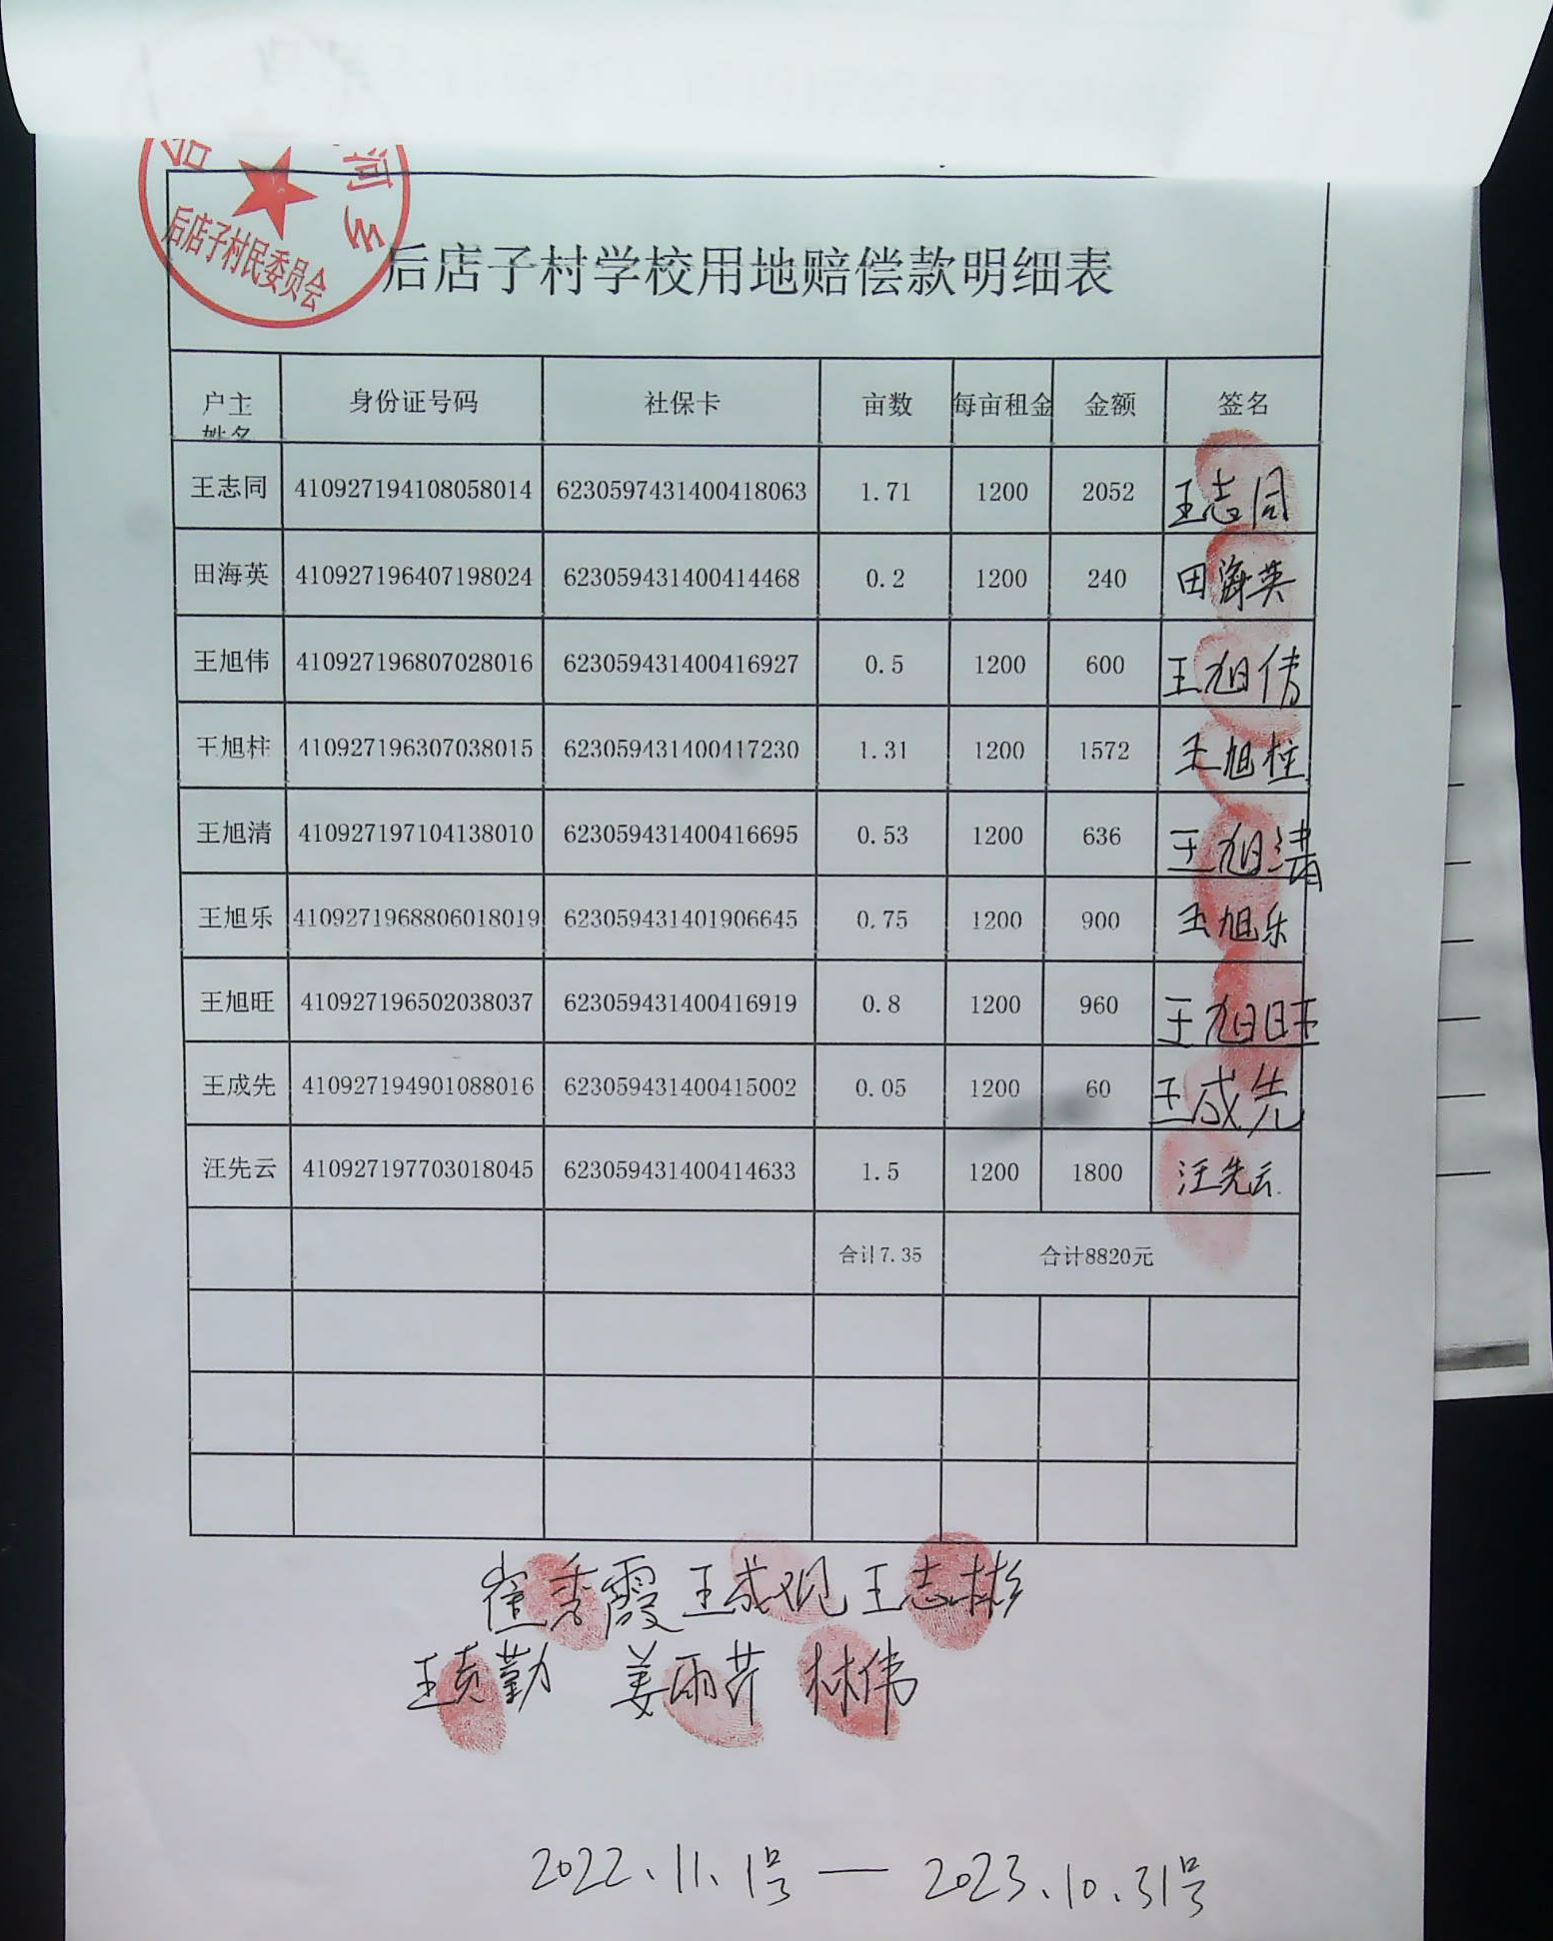 河乡
后店子村民委员会
后店子村学校用地赔偿款明细表
户主姓名 身份证号码 社保卡 亩数 每亩租金 金额 签名
王志同 410927194108058014 6230597431400418063 1.71 1200 2052 王志同
田海英 410927196407198024 623059431400414468 0.2 1200 240 田海英
王旭伟 410927196807028016 623059431400416927 0.5 1200 600 王旭倩
王旭柱 410927196307038015 623059431400417230 1.31 1200 1572 王旭柱
王旭清 410927197104138010 623059431400416695 0.53 1200 636 王旭清
王旭乐 4109271968806018019 623059431401906645 0.75 1200 900 王旭乐
王旭旺 410927196502038037 623059431400416919 0.8 1200 960 王旭旺
王成先 410927194901088016 623059431400415002 0.05 1200 60 王成先
汪先云 410927197703018045 623059431400414633 1.5 1200 1800 汪先云
合计7.35 合计8820元
崔秀霞 王成观 王志彬
王贵勤 姜丽芹 林伟
2022.11.1号—2023.10.31号